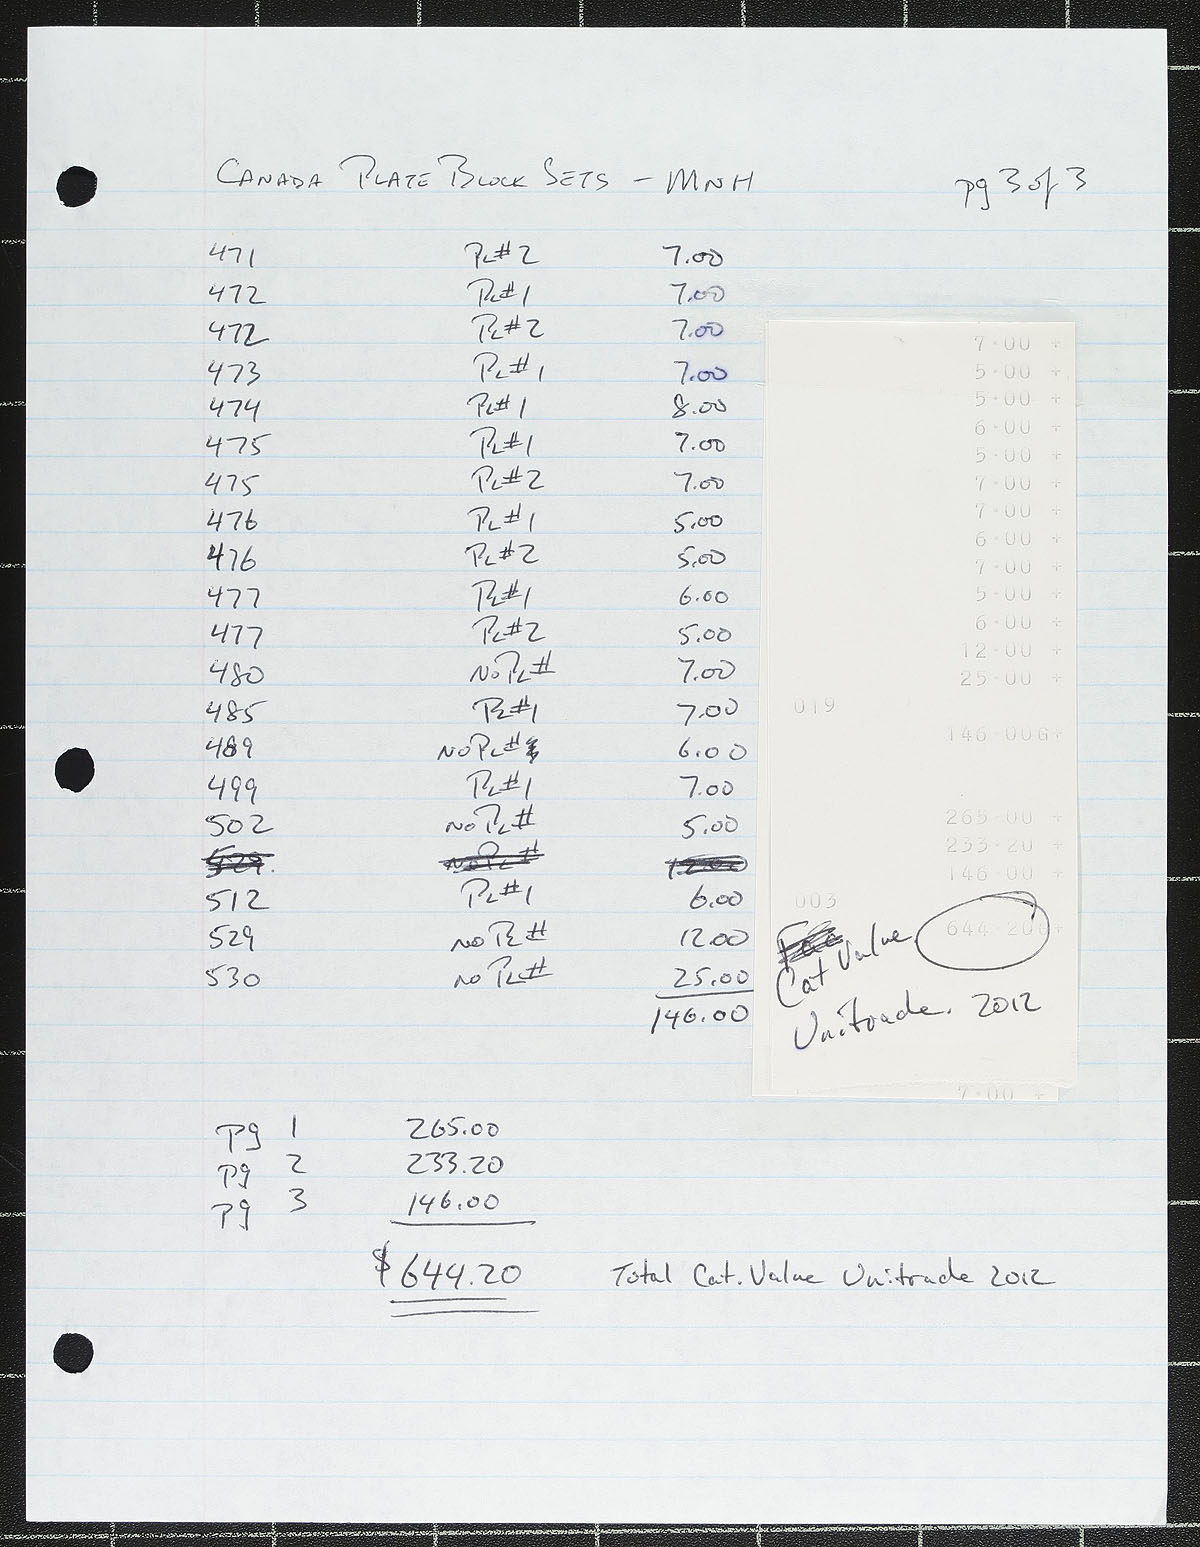 CANADA PLATE BLOCK SETS - MNH pg 3 of 3
471 PL#2 7.00
472 PL#1 7.00
472 PL#2 7.00
473 PL#1 7.00
474 PL#1 8.00
475 PL#1 7.00
475 PL#2 7.00
476 PL#1 5.00
476 PL#2 5.00
477 PL#1 6.00
477 PL#2 5.00
480 NO PL# 7.00
485 PL#1 7.00
489 NO PL# 6.00
499 PL#1 7.00
502 NO PL# 5.00
529. NO PL# 12.00
512 PL#1 6.00
529 NO PL# 12.00
530 NO PL# 25.00
146.00
7·00 +
5·00 +
5·00 +
6·00 +
5·00 +
7·00 +
7·00 +
6·00 +
7·00 +
5·00 +
6·00 +
12·00 +
25·00 +
019
146·00G+
265·00 +
233·20 +
146·00 +
003
644·20G+
Cat Value
Unitrade. 2012
7·00 +
pg 1 265.00
pg 2 233.20
pg 3 146.00
$644.20 Total Cat. Value Unitrade 2012